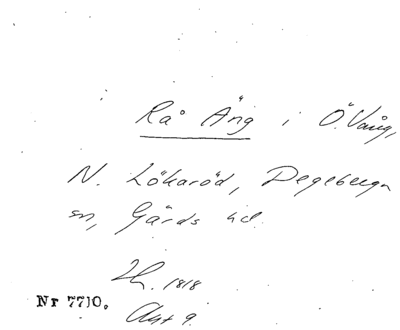 Rå Äng i Ö. Vång,
N. Lökaröd, Degeberga
sn, Gärds hd.
Lh. 1818
Nr 7710.
Akt 9.